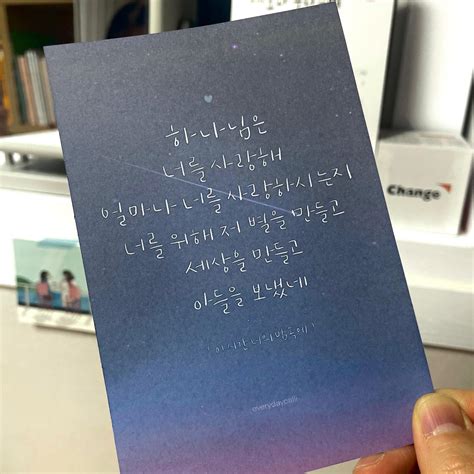 하나님은
너를 사랑해
얼마나 너를 사랑하시는지
너를 위해 저 별을 만들고
세상을 만들고
아들을 보냈네
' 이 시간 너의 맘 속에 '
Change